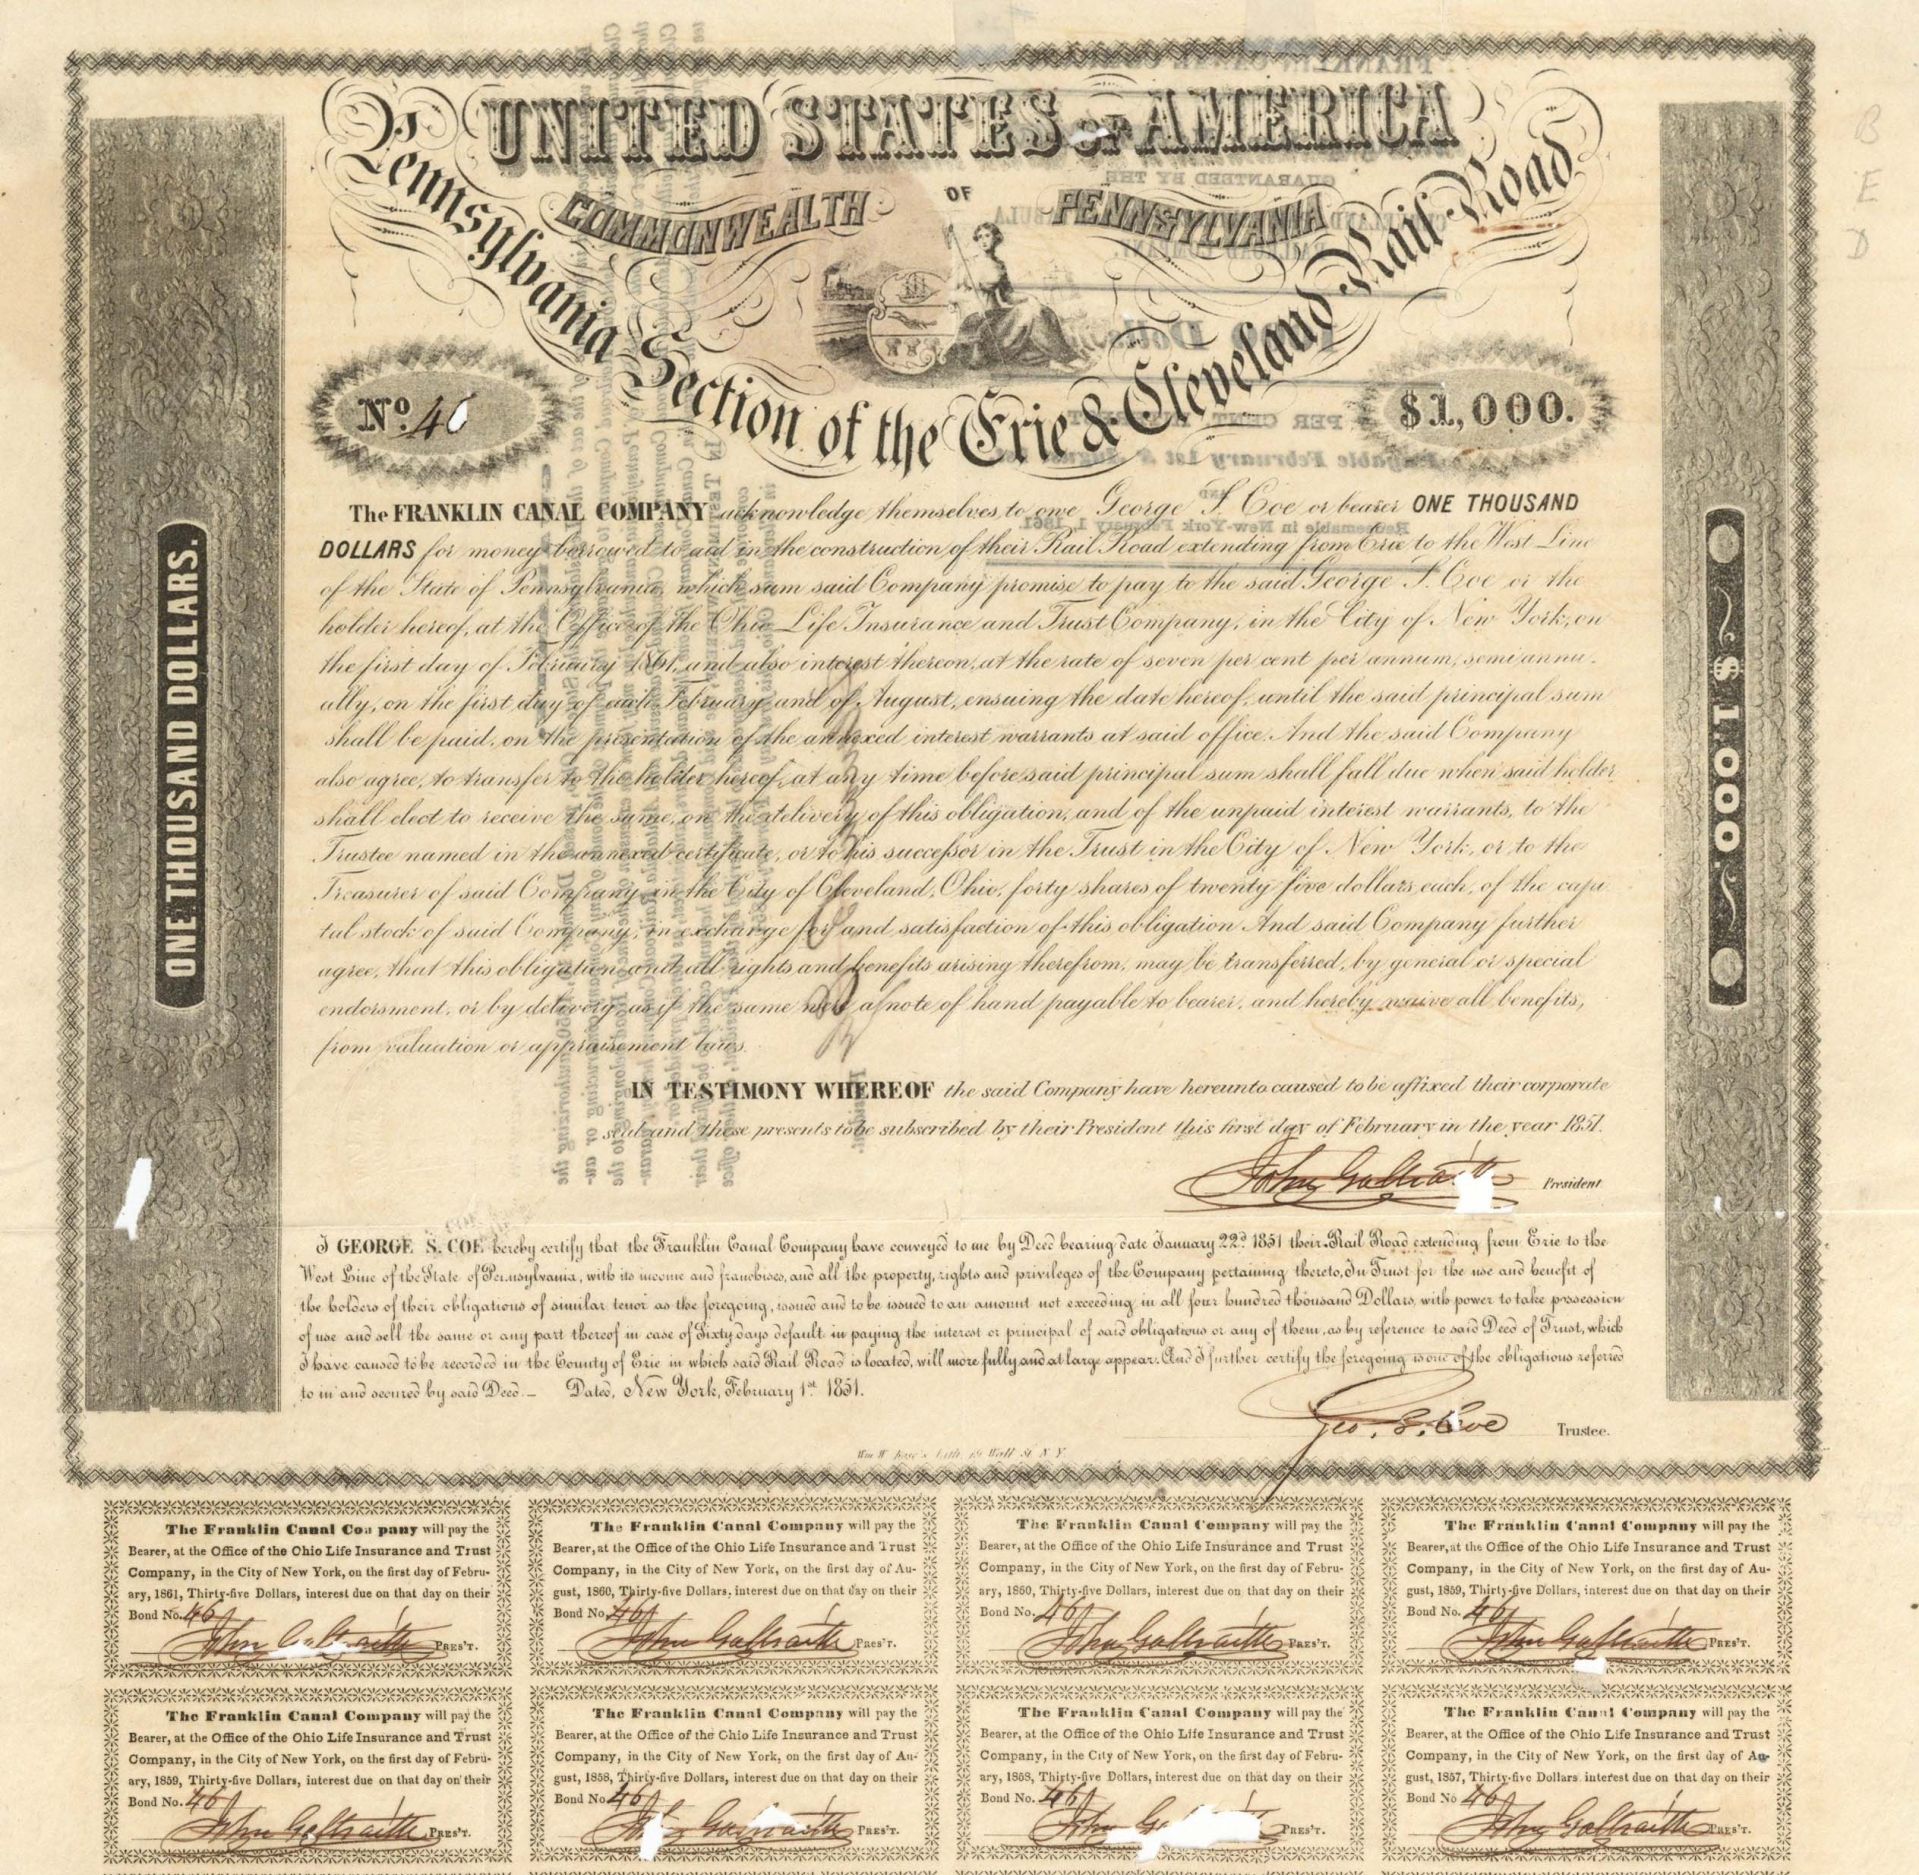 UNITED STATES OF AMERICA
COMMONWEALTH OF PENNSYLVANIA
Pennsylvania Section of the Erie & Cleveland Rail Road
No. 46
$1,000.
ONE THOUSAND DOLLARS.
$1,000.
The FRANKLIN CANAL COMPANY acknowledge themselves to owe George S. Coe or bearer ONE THOUSAND
DOLLARS for money borrowed to aid in the construction of their Rail Road extending from Erie to the West Line
of the State of Pennsylvania, which sum said Company promise to pay to the said George S. Coe or the
holder hereof, at the Office of the Ohio Life Insurance and Trust Company, in the City of New York, on
the first day of February 1861, and also interest thereon, at the rate of seven per cent per annum, semi annu-
ally, on the first day of each February and of August, ensuing the date hereof, until the said principal sum
shall be paid, on the presentation of the annexed interest warrants at said office. And the said Company
also agree, to transfer to the holder hereof, at any time before said principal sum shall fall due when said holder
shall elect to receive the same, on the delivery of this obligation, and of the unpaid interest warrants, to the
Trustee named in the annexed certificate, or to his successor in the Trust in the City of New York, or to the
Treasurer of said Company in the City of Cleveland, Ohio, forty shares of twenty five dollars each, of the capi
tal stock of said Company, in exchange for and satisfaction of this obligation And said Company further
agree, that this obligation and all rights and benefits arising therefrom, may be transferred, by general or special
endorsment, or by delivery as if the same were a note of hand payable to bearer, and hereby waive all benefits,
from valuation or appraisement laws.
IN TESTIMONY WHEREOF the said Company have hereunto caused to be affixed their corporate
seal and these presents to be subscribed by their President this first day of February in the year 1851.
John Galbraith President
I GEORGE S. COE hereby certify that the Franklin Canal Company have conveyed to me by Deed bearing date January 22d 1851 their Rail Road extending from Erie to the
West Line of the State of Pennsylvania, with its income and franchises, and all the property, rights and privileges of the Company pertaining thereto, In Trust for the use and benefit of
the holders of their obligations of similar tenor as the foregoing, issued and to be issued to an amount not exceeding in all four hundred thousand Dollars, with power to take possession
of use and sell the same or any part thereof in case of Sixty days default in paying the interest or principal of said obligations or any of them, as by reference to said Deed of Trust, which
I have caused to be recorded in the County of Erie in which said Rail Road is located, will more fully and at large appear. And I further certify the foregoing is one of the obligations referred
to in and secured by said Deed. – Dated, New York, February 1st 1851.
Geo. S. Coe Trustee.
Wm W Rose's Lith. 19 Wall St N Y
B
E
D
The Franklin Canal Company will pay the
Bearer, at the Office of the Ohio Life Insurance and Trust
Company, in the City of New York, on the first day of Febru-
ary, 1861, Thirty-five Dollars, interest due on that day on their
Bond No. 46
John Galbraith PRES'T.
The Franklin Canal Company will pay the
Bearer, at the Office of the Ohio Life Insurance and Trust
Company, in the City of New York, on the first day of Au-
gust, 1860, Thirty-five Dollars, interest due on that day on their
Bond No. 46
John Galbraith PRES'T.
The Franklin Canal Company will pay the
Bearer, at the Office of the Ohio Life Insurance and Trust
Company, in the City of New York, on the first day of Febru-
ary, 1860, Thirty-five Dollars, interest due on that day on their
Bond No. 46
John Galbraith PRES'T.
The Franklin Canal Company will pay the
Bearer, at the Office of the Ohio Life Insurance and Trust
Company, in the City of New York, on the first day of Au-
gust, 1859, Thirty-five Dollars, interest due on that day on their
Bond No. 46
John Galbraith PRES'T.
The Franklin Canal Company will pay the
Bearer, at the Office of the Ohio Life Insurance and Trust
Company, in the City of New York, on the first day of Febru-
ary, 1859, Thirty-five Dollars, interest due on that day on their
Bond No. 46
John Galbraith PRES'T.
The Franklin Canal Company will pay the
Bearer, at the Office of the Ohio Life Insurance and Trust
Company, in the City of New York, on the first day of Au-
gust, 1858, Thirty-five Dollars, interest due on that day on their
Bond No. 46
John Galbraith PRES'T.
The Franklin Canal Company will pay the
Bearer, at the Office of the Ohio Life Insurance and Trust
Company, in the City of New York, on the first day of Febru-
ary, 1858, Thirty-five Dollars, interest due on that day on their
Bond No. 46
John Galbraith PRES'T.
The Franklin Canal Company will pay the
Bearer, at the Office of the Ohio Life Insurance and Trust
Company, in the City of New York, on the first day of Au-
gust, 1857, Thirty-five Dollars interest due on that day on their
Bond No 46
John Galbraith PRES'T.